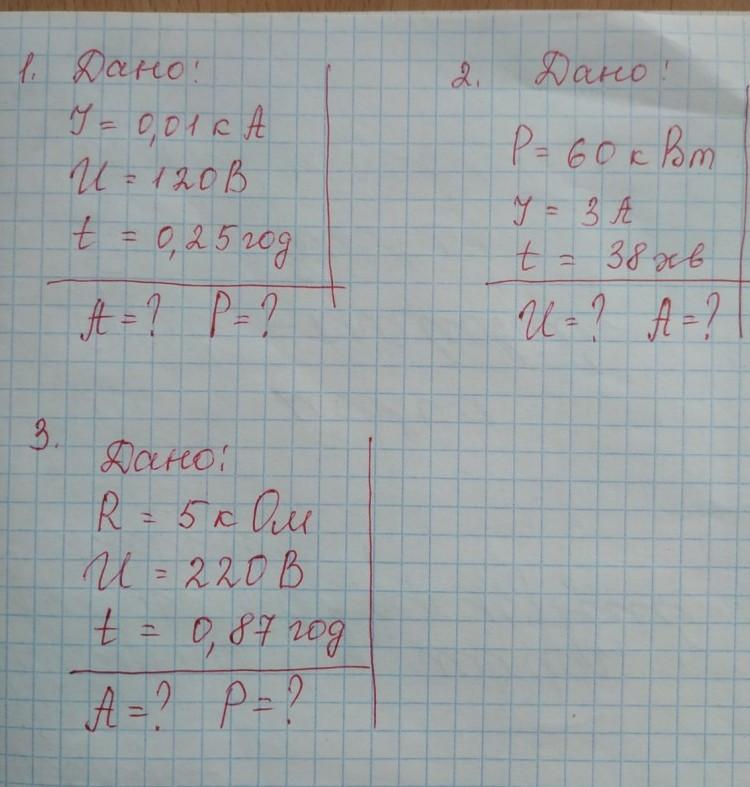 1. Дано:
I = 0,01 кА
U = 120В
t = 0,25 год
A = ? P = ?
2. Дано:
P = 60 кВт
I = 3 А
t = 38 хв
U = ? A = ?
3.
Дано:
R = 5 кОм
U = 220В
t = 0,87 год
A = ? P = ?